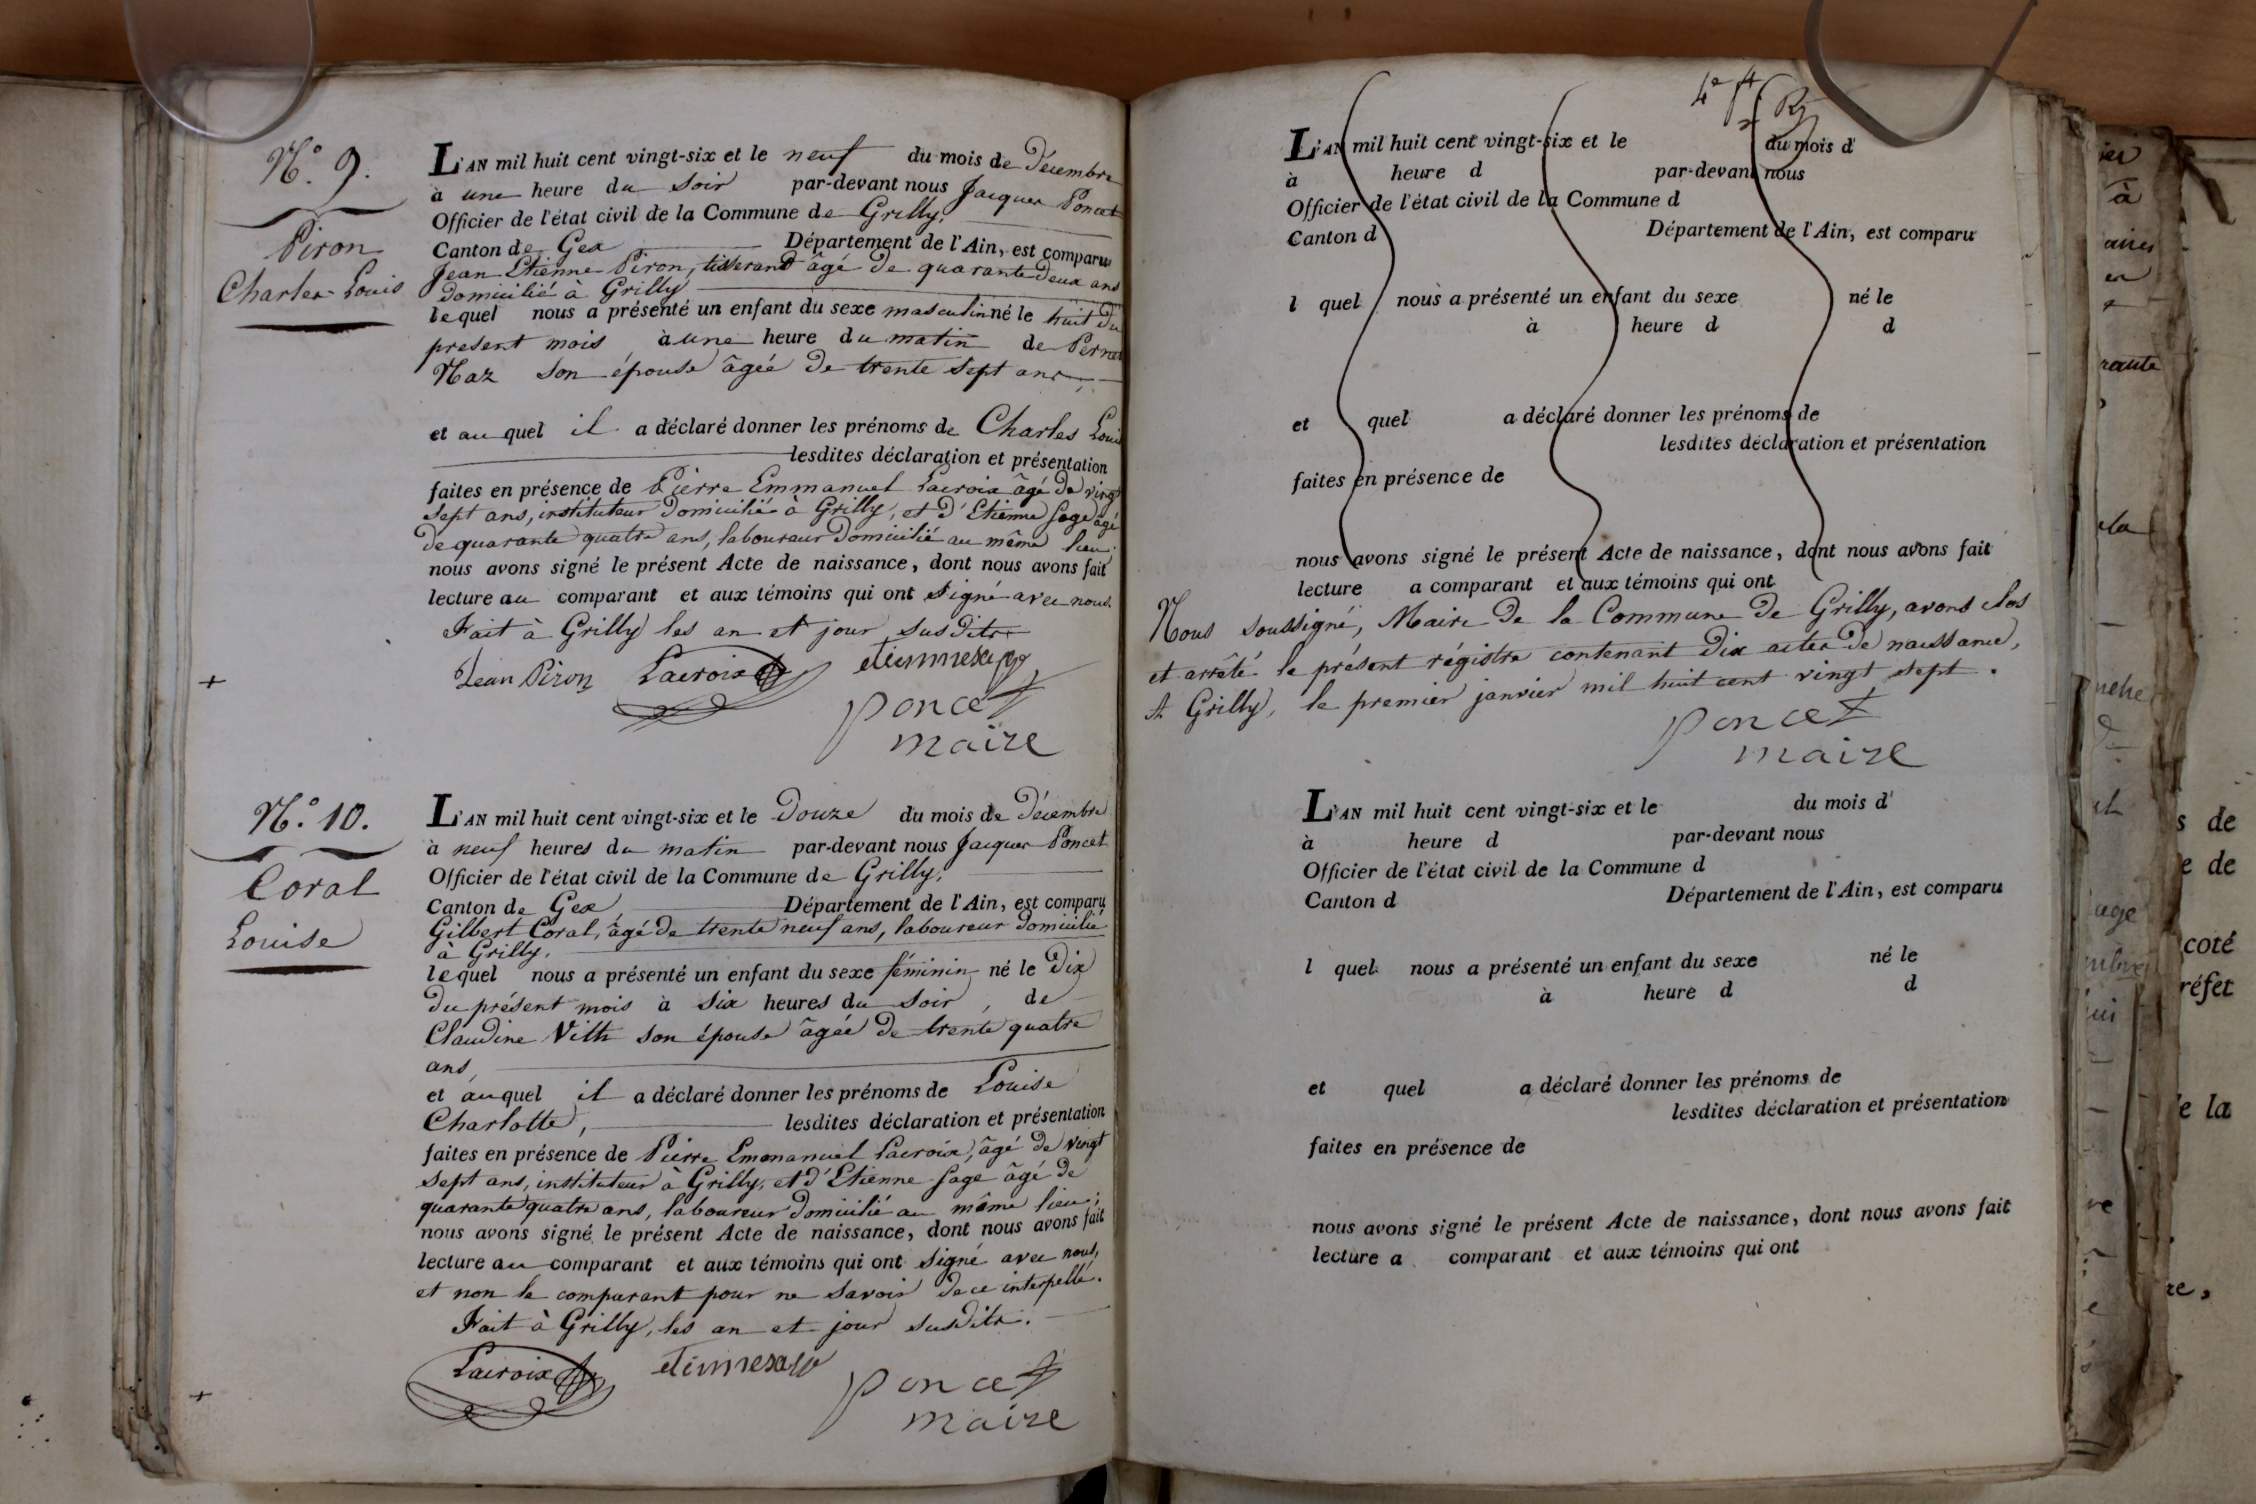 N.° 9.
Piron
Charles Louis
L'AN mil huit cent vingt-six et le neuf du mois de Décembre
à une heure du soir par-devant nous Jacques Poncet
Officier de l'état civil de la Commune de Grilly,
Canton de Gex Département de l'Ain, est comparu
Jean Etienne Piron, tisserand âgé de quarante deux ans
domicilié à Grilly
lequel nous a présenté un enfant du sexe masculin né le huit du
present mois à une heure du matin de Pernet
Naz son épouse âgée de trente sept ans,
et au quel il a déclaré donner les prénoms de Charles Louis
lesdites déclaration et présentation
faites en présence de Pierre Emmanuel Lacroix âgé de vingt
sept ans, instituteur domicilié à Grilly, et d'Etienne Sage âgé
de quarante quatre ans, laboureur domicilié au même lieu.
nous avons signé le présent Acte de naissance, dont nous avons fait
lecture au comparant et aux témoins qui ont signé avec nous.
Fait à Grilly les an et jour susdits
Jean Piron Lacroix etiennesage
poncet
maire
N.° 10.
Coral
Louise
L'AN mil huit cent vingt-six et le Douze du mois de Décembre
à neuf heures du matin par-devant nous Jacques Poncet
Officier de l'état civil de la Commune de Grilly,
Canton de Gex, Département de l'Ain, est comparu
Gilbert Coral, âgé de trente neuf ans, laboureur domicilié
à Grilly,
lequel nous a présenté un enfant du sexe féminin né le Dix
du présent mois à six heures du soir, de
Claudine Vith son épouse âgée de trente quatre
ans,
et auquel il a déclaré donner les prénoms de Louise
Charlotte, lesdites déclaration et présentation
faites en présence de Pierre Emmanuel Lacroix, âgé de vingt
sept ans, instituteur à Grilly, et d'Etienne Sage âgé de
quarante quatre ans, laboureur domicilié au même lieu;
nous avons signé le présent Acte de naissance, dont nous avons fait
lecture au comparant et aux témoins qui ont signé avec nous,
et non le comparant pour ne savoir de ce interpellé.
Fait à Grilly, les an et jour susdits.
Lacroix etiennesage
poncet
maire
L'AN mil huit cent vingt-six et le du mois d
à heure d par-devant nous
Officier de l'état civil de la Commune d
Canton d Département de l'Ain, est comparu
l quel nous a présenté un enfant du sexe né le
à heure d d
et quel a déclaré donner les prénoms de
lesdites déclaration et présentation
faites en présence de
nous avons signé le présent Acte de naissance, dont nous avons fait
lecture a comparant et aux témoins qui ont
Nous soussigné, Maire de la Commune de Grilly, avons clos
et arrêté le présent régistre contenant dix actes de naissance,
A Grilly, le premier janvier mil huit cent vingt sept.
poncet
maire
L'AN mil huit cent vingt-six et le du mois d
à heure d par-devant nous
Officier de l'état civil de la Commune d
Canton d Département de l'Ain, est comparu
l quel nous a présenté un enfant du sexe né le
à heure d d
et quel a déclaré donner les prénoms de
lesdites déclaration et présentation
faites en présence de
nous avons signé le présent Acte de naissance, dont nous avons fait
lecture a comparant et aux témoins qui ont